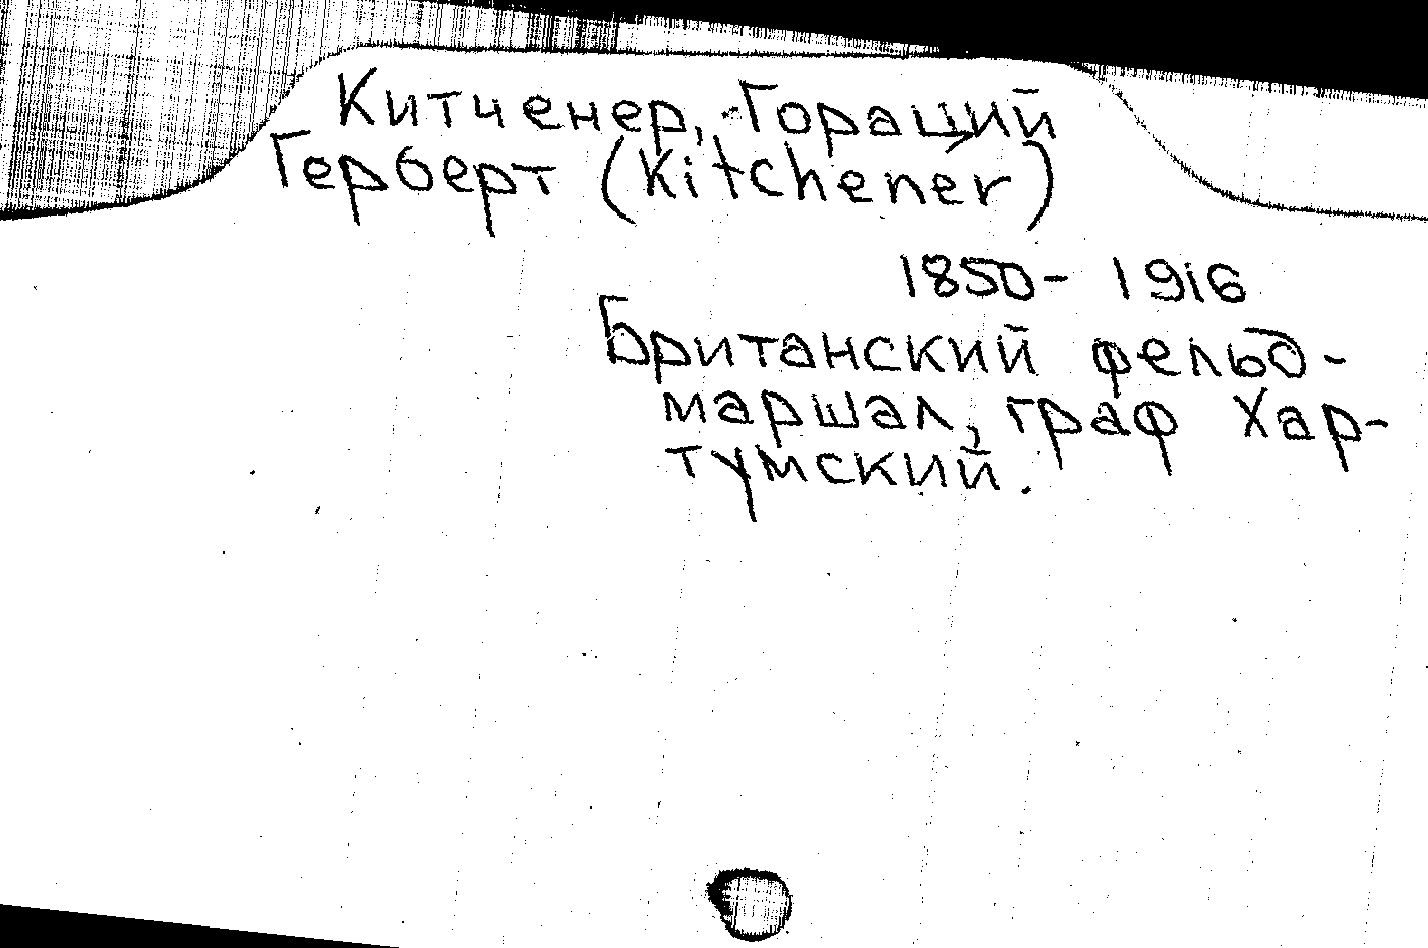 Китченер, Гораций
Герберт (Kitchener)
1850 - 1916
Британский фельд-
маршал, граф Хар-
тумский.